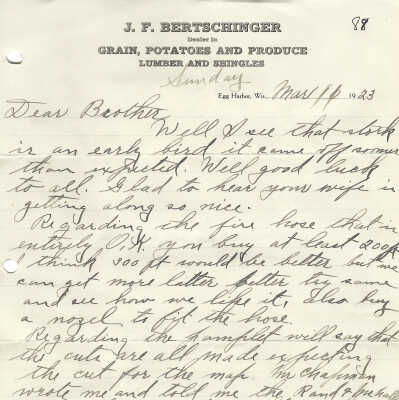 88
J. F. BERTSCHINGER
Dealer in
GRAIN, POTATOES AND PRODUCE
LUMBER AND SHINGLES
Sunday
Egg Harbor, Wis., Mar 1923
Dear Brother
Well I see that stork
is an early bird it came off sooner
than expected. Well good luck
to all. Glad to hear your wife is
getting along so nice.
Regarding the fire hose that is
entirely O.K. you buy at least 200ft
I think 300 ft would be better but we
can get more latter better try some
and see how we like it, also buy
a nozel to fit the hose.
Regarding the pamplet will say that
the cuts are all made expecting
the cut for the map. Mr Chapman
wrote me and told me the Rand &